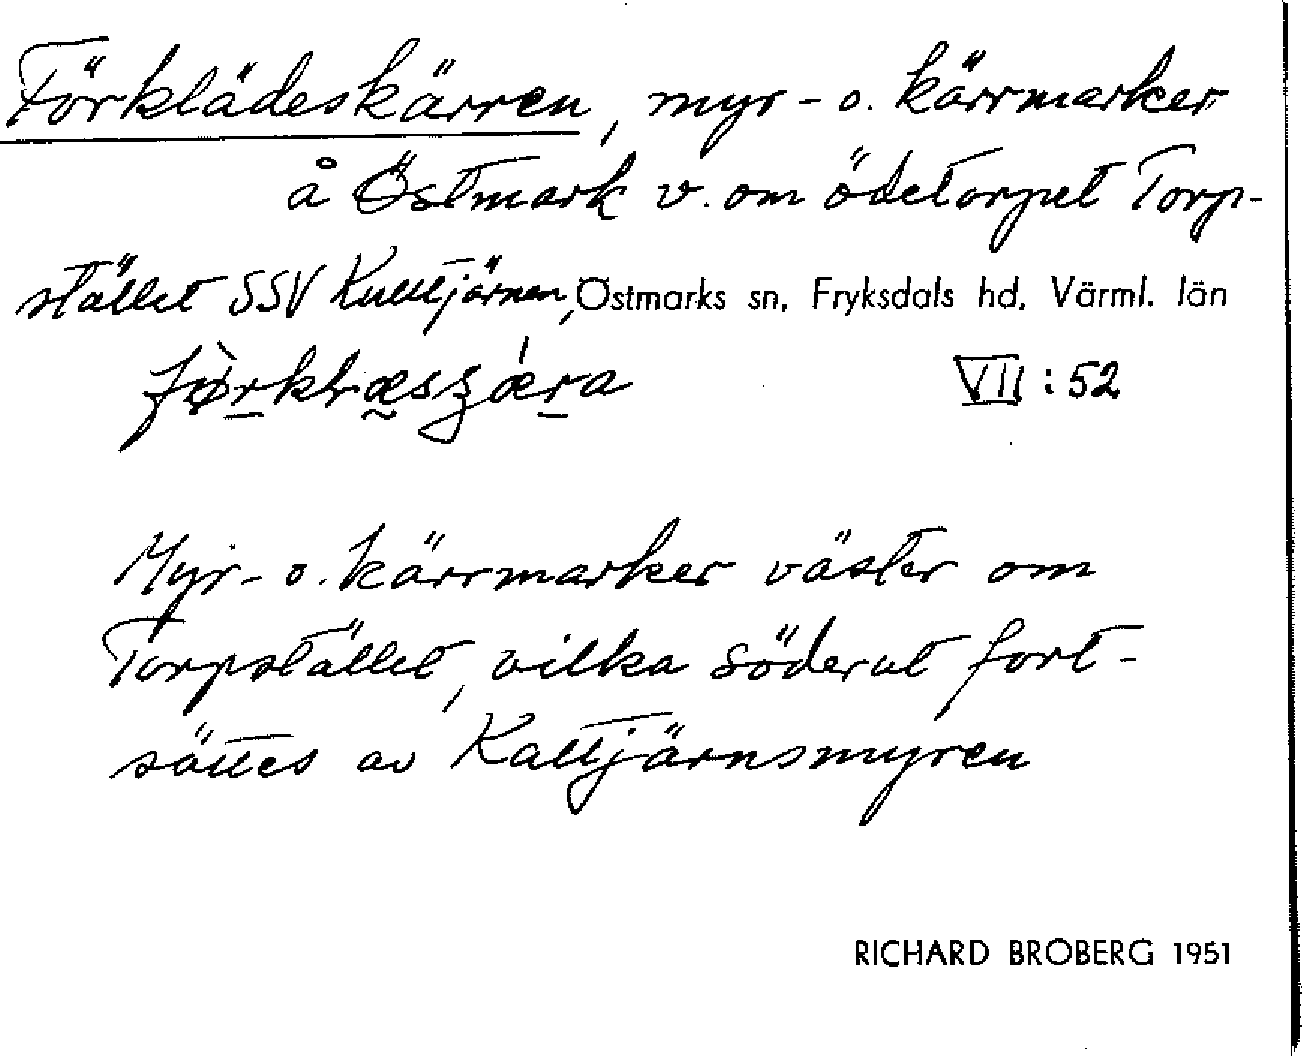 Förklädeskärren, myr- o. kärrmarker
å Östmark v. om ödetorpet Torp-
stället SSV Kalltjärnen, Östmarks sn, Fryksdals hd. Värml. län
VII : 52
Myr- o. kärrmarker väster om
Torpstället, vilka söderut fort-
sättes av Kalltjärnsmyren
RICHARD BROBERG 1951